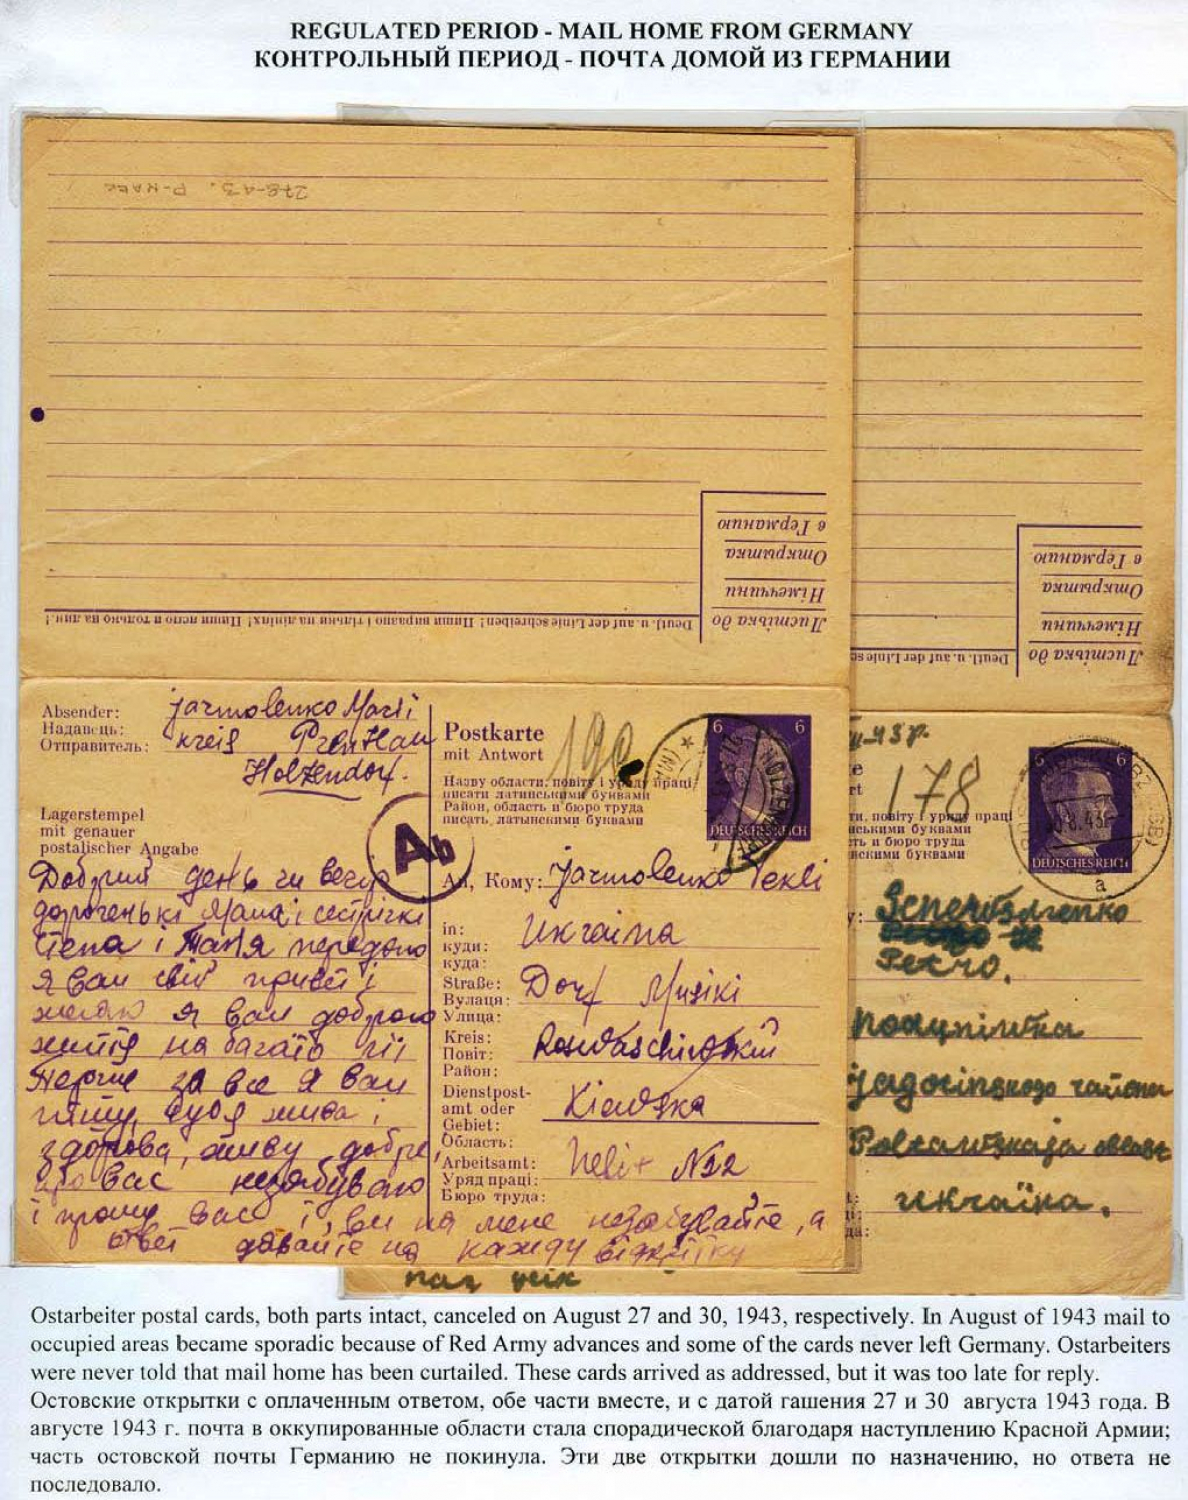 REGULATED PERIOD - MAIL HOME FROM GERMANY
КОНТРОЛЬНЫЙ ПЕРИОД - ПОЧТА ДОМОЙ ИЗ ГЕРМАНИИ
Листівка до
Німеччини
Открытка
в Германию
Deutl. u. auf der Linie schreiben! Пиши виразно і тільки на лініях! Пиши ясно и только на лин.!
Листівка до
Німеччини
Открытка
в Германию
Deutl. u. auf der Linie sc
Absender:
Надавець:
Отправитель:
Jarmolenko Marii
kreis Prenzlau
Holzendorf.
Lagerstempel
mit genauer
postalischer Angabe
Ab
Добрий день чи вечір
дорогенькі Мама і сестрички
і Таня передаю
я Вам свій привєт і
желаю я Вам доброго
життя на багато літ
Перше за все я Вам
пишу, шо я жива і
здорова, живу добре,
про Вас незабуваю
і прошу Вас і ви на мене незабувайте, а
ответ давайте на кажду відкритку
Postkarte
mit Antwort
190
Назву области, повіту і уряду праці
писати латинськими буквами
Район, область и бюро труда
писать латынскими буквами
6 6
DEUTSCHES REICH
An, Кому: Jarmolenko Tekli
in:
куди:
куда:
Ukraina
Straße:
Вулаця:
Улица:
Dorf Musiki
Kreis:
Повіт:
Район:
Dienstpost-
amt oder
Gebiet:
Область:
Kiewska
Arbeitsamt:
Уряд праці:
Бюро труда:
N 12
178
6 6
DEUTSCHES REICH
30.8.43
a
ти, повіту і уряду праці
нськими буквами
ть и бюро труда
нскими буквами
Jagotinskogo района
Poltawskaja област
Ukraina.
Ostarbeiter postal cards, both parts intact, canceled on August 27 and 30, 1943, respectively. In August of 1943 mail to
occupied areas became sporadic because of Red Army advances and some of the cards never left Germany. Ostarbeiters
were never told that mail home has been curtailed. These cards arrived as addressed, but it was too late for reply.
Остовские открытки с оплаченным ответом, обе части вместе, и с датой гашения 27 и 30 августа 1943 года. В
августе 1943 г. почта в оккупированные области стала спорадической благодаря наступлению Красной Армии;
часть остовской почты Германию не покинула. Эти две открытки дошли по назначению, но ответа не
последовало.